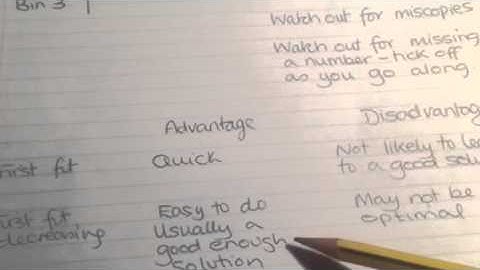 Bin 3
Watch out for miscopies
Watch out for missing
a number - tick off
as you go along
Advantage
First fit
Quick
Not likely to
to a good
First fit
decreasing
Easy to do
Usually a
good enough
solution
May not be
optimal